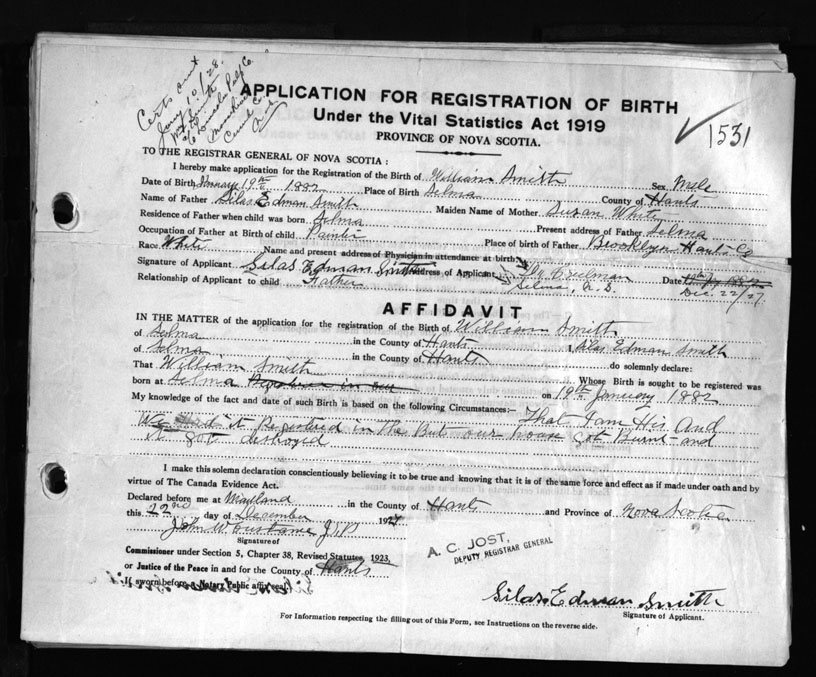 Certs out
Jany 10/28.
Wm Smith
APPLICATION FOR REGISTRATION OF BIRTH
Under the Vital Statistics Act 1919
PROVINCE OF NOVA SCOTIA.
1531
TO THE REGISTRAR GENERAL OF NOVA SCOTIA:
I hereby make application for the Registration of the Birth of William Smith Sex Male
Date of Birth January 19th 1882 Place of Birth Selma County of Hants
Name of Father Silas Edman Smith Maiden Name of Mother Susan White
Residence of Father when child was born Selma Present address of Father Selma
Occupation of Father at Birth of child Painter Place of birth of Father Brooklyn Hants Co
Race White Name and present address of Physician in attendance at birth
Signature of Applicant Silas Edman Smith Address of Applicant Creelman Date
Relationship of Applicant to child Father Selma, N.S. Dec. 22/27
AFFIDAVIT
IN THE MATTER of the application for the registration of the Birth of William Smith
of Selma in the County of Hants I, Silas Edman Smith
of Selma in the County of Hants do solemnly declare:
That William Smith Whose Birth is sought to be registered was
born at Selma on 19th January 1882
My knowledge of the fact and date of such Birth is based on the following Circumstances:— That I am His And
We it Registered in the But our house got Burnt and
it got destroyed
I make this solemn declaration conscientiously believing it to be true and knowing that it is of the same force and effect as if made under oath and by
virtue of The Canada Evidence Act.
Declared before me at Maitland in the County of Hants and Province of Nova Scotia
this 22nd day of December 1927
John W J.P.
Signature of
A. C. JOST,
DEPUTY REGISTRAR GENERAL
Commissioner under Section 5, Chapter 38, Revised Statutes, 1923,
or Justice of the Peace in and for the County of Hants
If sworn before Notary Public affix seal
Silas Edman Smith
Signature of Applicant.
For Information respecting the filling out of this Form, see Instructions on the reverse side.